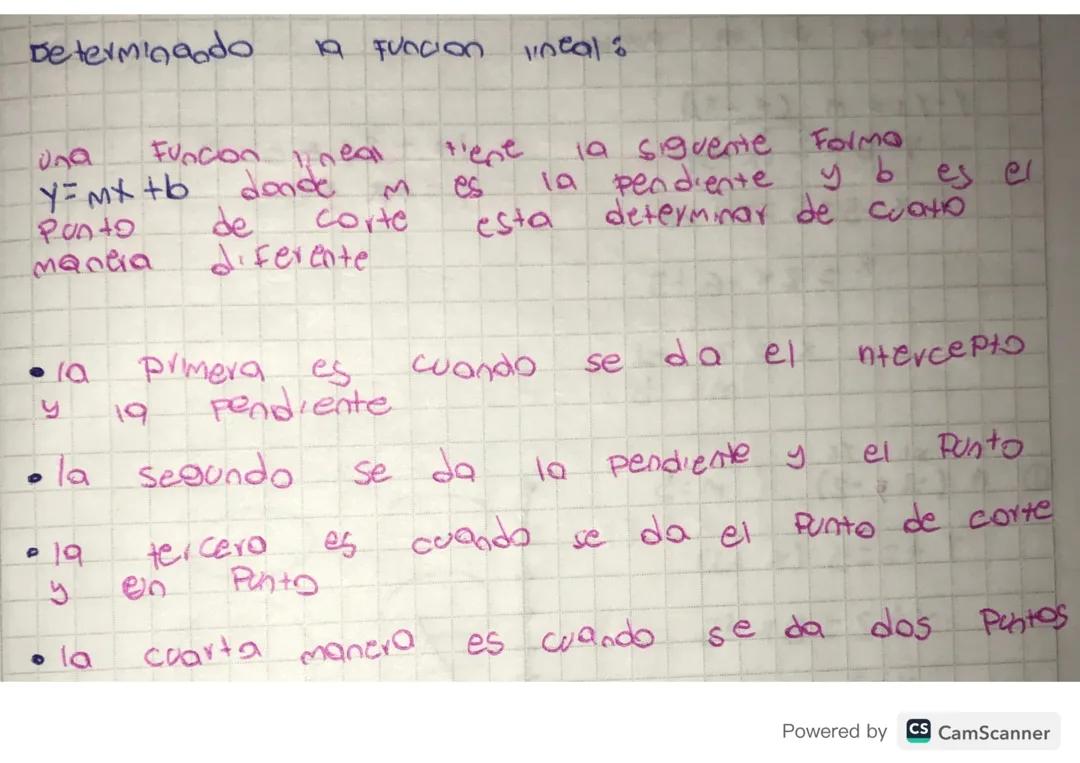 Determinando la Funcion lineal:
una Funcon lineal tiene la siguente Forma
y=mx+b donde m es la pendiente y b es el
Punto de corte esta determinar de cuatro
manera diferente
• la primera es cuando se da el ntercepto
y la Pendiente
• la segundo se da la pendiente y el Punto
• la tercero es cuando se da el Punto de corte
y en Punto
• la cuarta manera es cuando se da dos Puntos
Powered by CS CamScanner